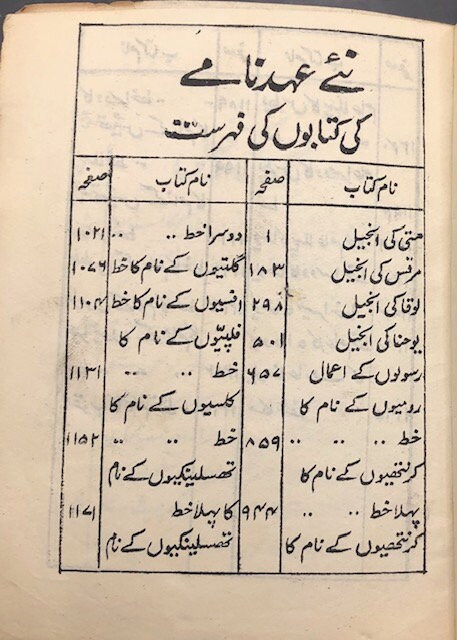 نئے عہد نامے
کی کتابوں کی فہرست
نام کتاب صفحہ
متی کی انجیل ۱
مرقس کی انجیل ۱۸۳
لوقا کی انجیل ۲۹۸
یوحنا کی انجیل ۵۰۱
رسولوں کے اعمال ۶۵۷
رومیوں کے نام کا
خط .. .. .. ۸۵۹
کرنتھیوں کے نام کا
پہلا خط .. .. ۹۴۴
کرنتھیوں کے نام کا
نام کتاب صفحہ
دوسرا خط .. .. ۱۰۲۱
گلتیوں کے نام کا خط ۱۰۷۶
افسیوں کے نام کا خط ۱۱۰۴
فلپیّوں کے نام کا
خط .. .. ۱۱۳۱
کلسیوں کے نام کا
خط .. .. ۱۱۵۲
تھسلینکیوں کے نام
کا پہلا خط ۱۱۷۱
تھسلینکیوں کے نام